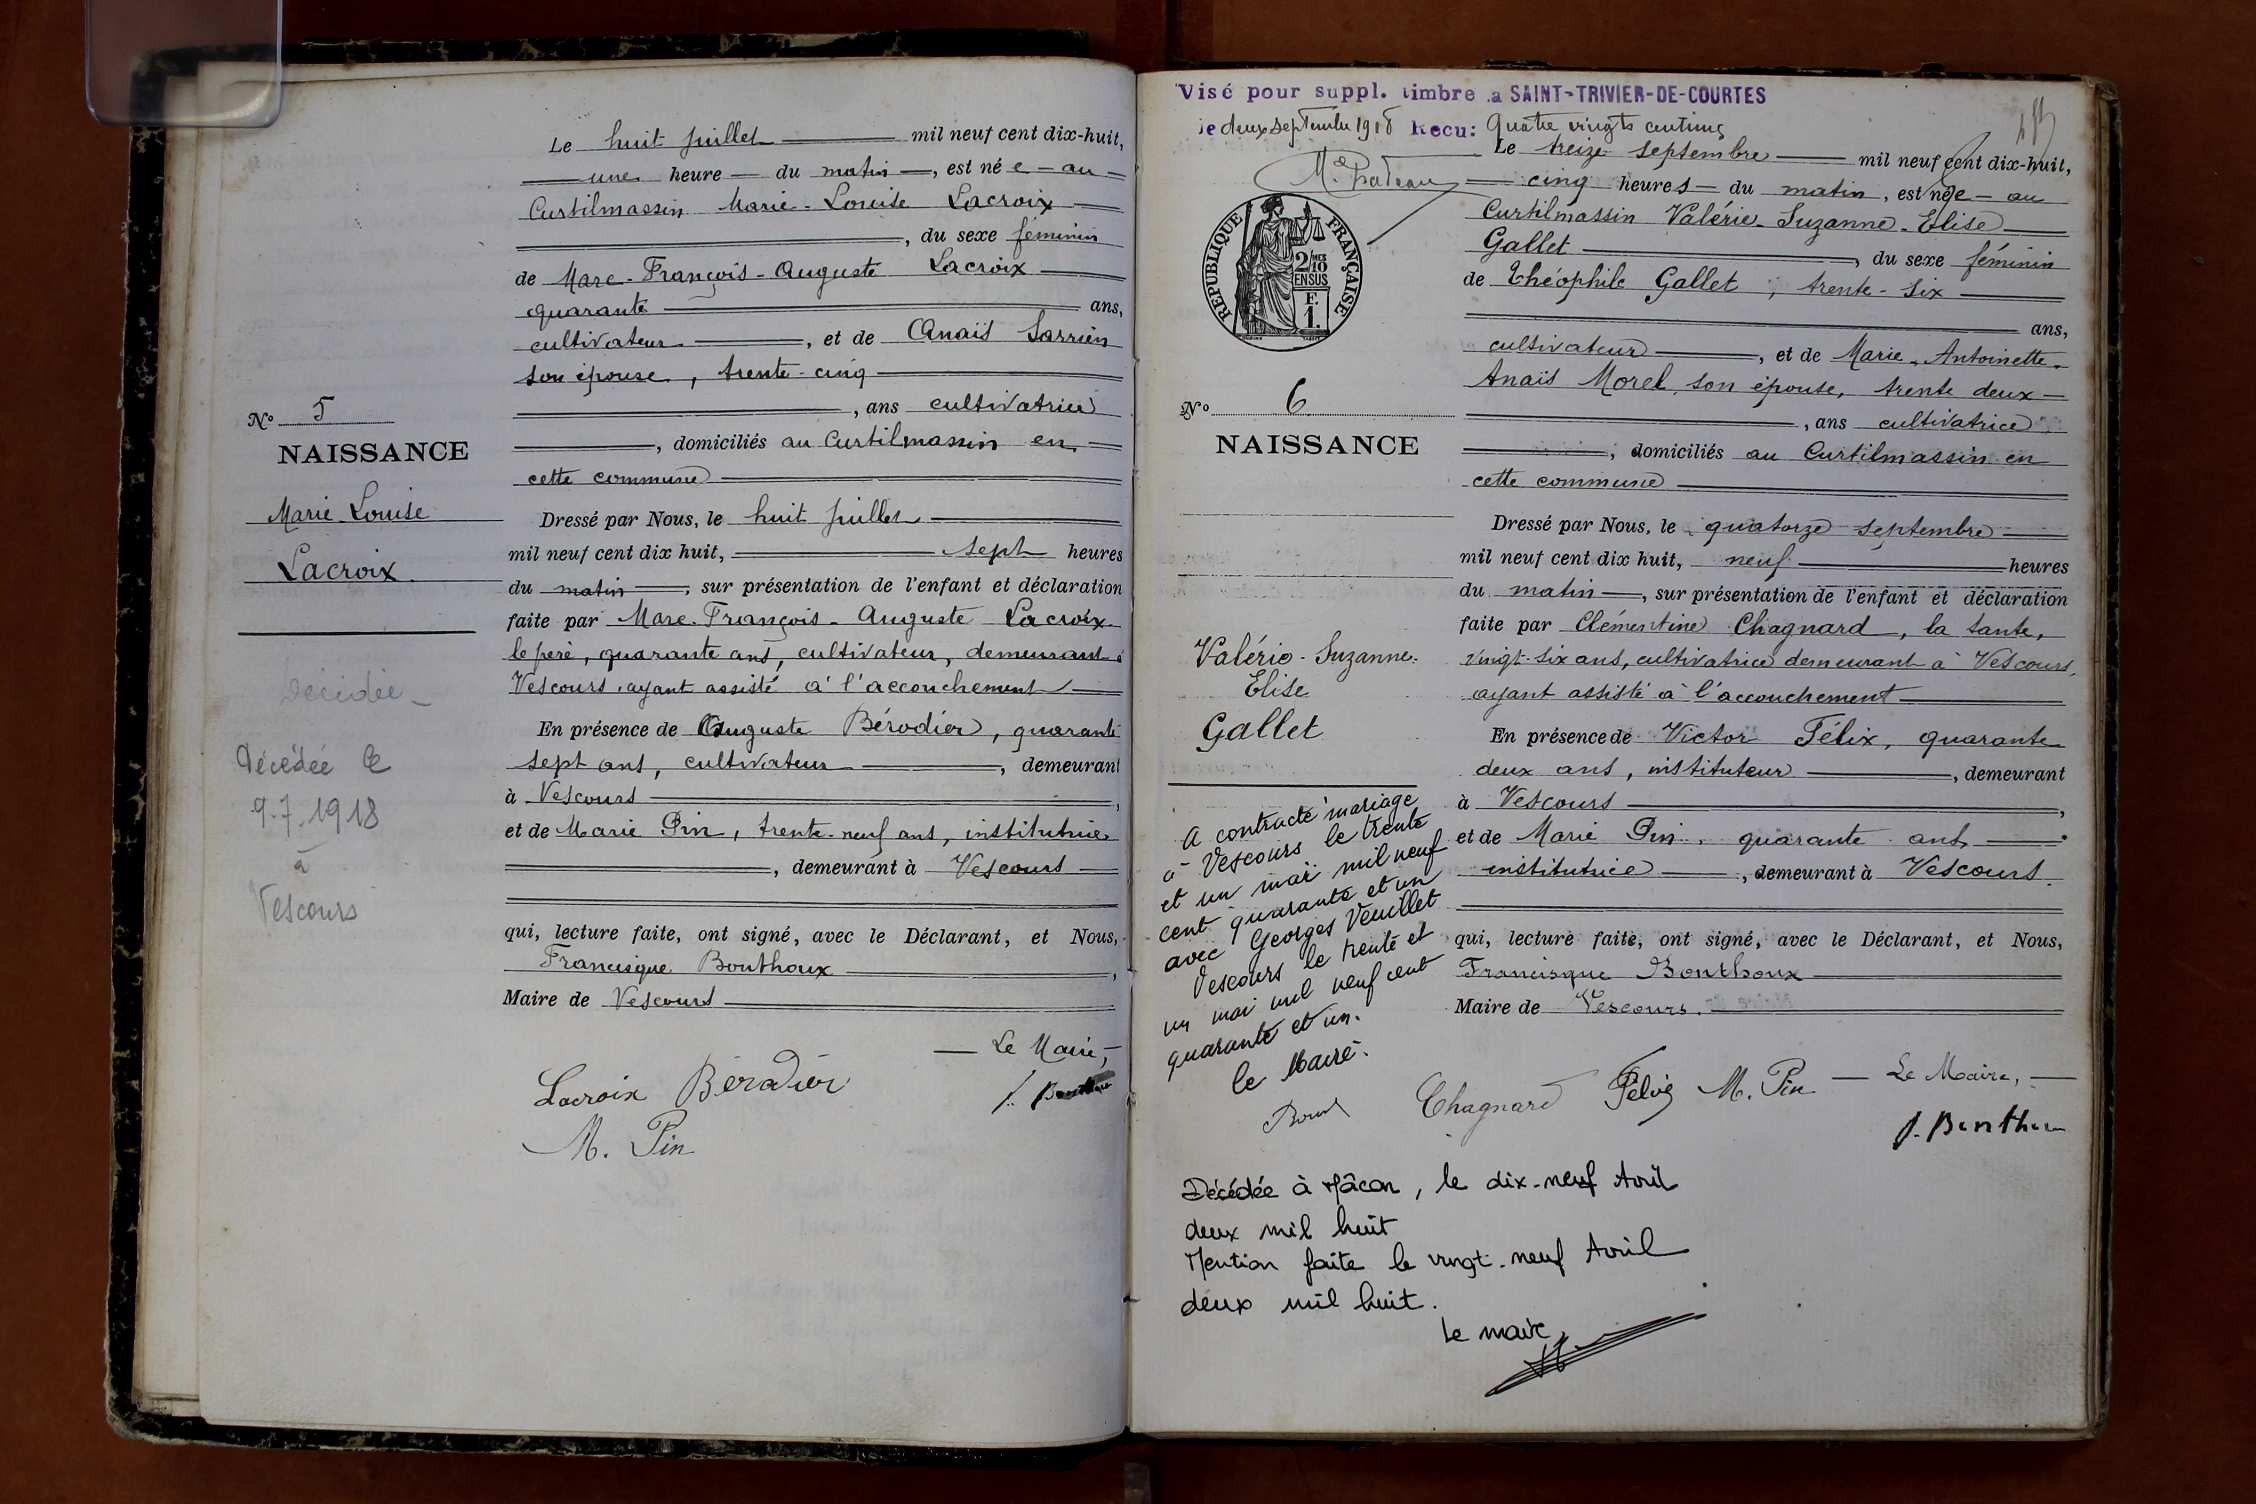 Le huit juillet mil neuf cent dix-huit,
une heure du matin, est née au
Curtilmassin Marie-Louise Lacroix
, du sexe féminin
de Marc-François-Auguste Lacroix
quarante ans,
cultivateur, et de Anaïs Sarrien
son épouse, trente-cinq
, ans cultivatrice
, domiciliés au Curtilmassin en
cette commune
Dressé par Nous, le huit juillet
mil neuf cent dix huit, sept heures
du matin, sur présentation de l'enfant et déclaration
faite par Marc-François-Auguste Lacroix
le père, quarante ans, cultivateur, demeurant à
Vescours, ayant assisté à l'accouchement
En présence de Auguste Bérodier, quarante
sept ans, cultivateur, demeurant
à Vescours,
et de Marie Pin, trente-neuf ans, institutrice
, demeurant à Vescours
qui, lecture faite, ont signé, avec le Déclarant, et Nous,
Francisque Bouthoux,
Maire de Vescours
Le Maire,
Lacroix Bérodier
M. Pin
No 5
NAISSANCE
Marie Louise
Lacroix
Décédée
Décédée le
9.7.1918
à
Vescours
Visé pour suppl. timbre à SAINT-TRIVIER-DE-COURTES
le deux septembre 1918 Reçu: Quatre vingts centimes
RÉPUBLIQUE FRANÇAISE
2/10 MES
EN SUS
F.
1.
No 6
NAISSANCE
Valérie-Suzanne-
Elise
Gallet
A contracté mariage
à Vescours le trente
et un mai mil neuf
cent quarante et un
avec Georges Veuillet
Vescours le trente et
un mai mil neuf cent
quarante et un.
le Maire.
Le treize septembre mil neuf cent dix-huit,
cinq heures du matin, est née au
Curtilmassin Valérie-Suzanne-Elise
Gallet, du sexe féminin
de Théophile Gallet, trente-six
ans,
cultivateur, et de Marie-Antoinette-
Anaïs Morel, son épouse, trente deux
, ans cultivatrice
, domiciliés au Curtilmassin en
cette commune
Dressé par Nous, le quatorze septembre
mil neuf cent dix huit, neuf heures
du matin, sur présentation de l'enfant et déclaration
faite par Clémentine Chagnard, la tante,
vingt-six ans, cultivatrice demeurant à Vescours,
ayant assisté à l'accouchement
En présence de Victor Félix, quarante
deux ans, instituteur, demeurant
à Vescours,
et de Marie Pin, quarante ans
institutrice, demeurant à Vescours.
qui, lecture faite, ont signé, avec le Déclarant, et Nous,
Francisque Bouthoux
Maire de Vescours.
Le Maire,
Chagnard Félix M. Pin
Décédée à Mâcon, le dix-neuf Avril
deux mil huit
Mention faite le vingt-neuf Avril
deux mil huit.
Le maire,